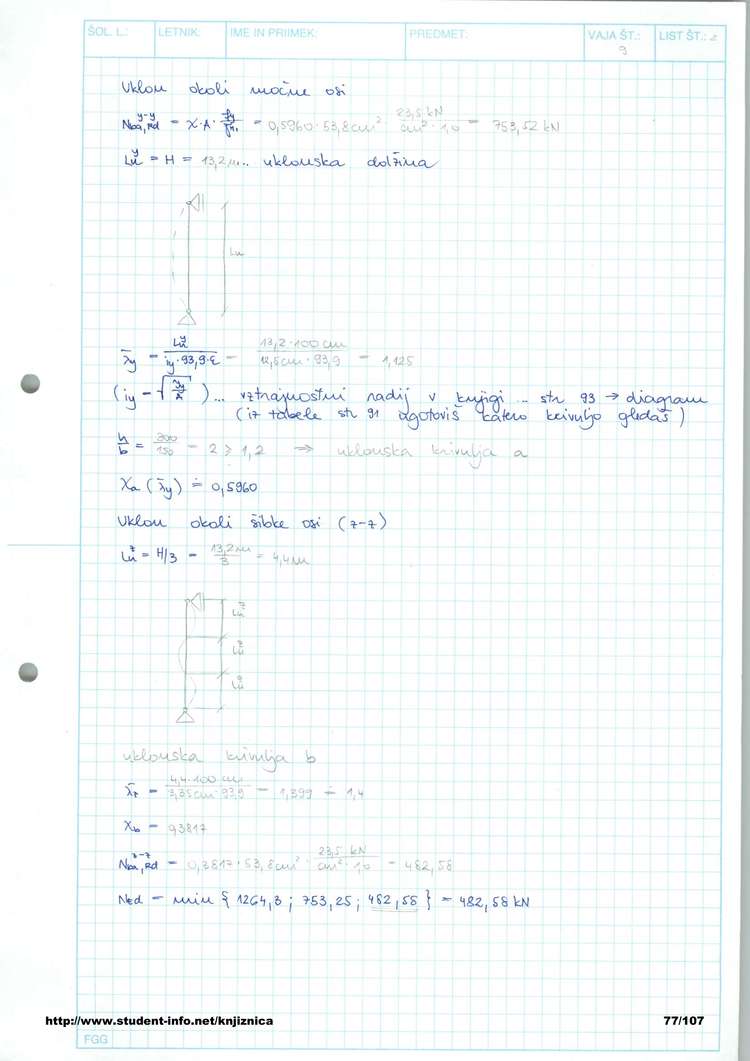 ŠOL. L.: LETNIK: IME IN PRIIMEK: PREDMET: VAJA ŠT.: 9 LIST ŠT.: 2
Uklon okoli močne osi
N_{ba,Rd}^{y-y} = χ·A·\frac{f_y}{γ_{M1}} = 0,5960·53,8cm²·\frac{23,5 kN}{cm²·1,0} = 753,52 kN
L_u^y = H = 13,2m... uklonska dolžina
Lu
\bar{λ}_y = \frac{L_u^y}{i_y·93,9·ε} = \frac{13,2·100 cm}{12,5cm·93,9} = 1,125
(i_y = \sqrt{\frac{I_y}{A}})... vztrajnostni radij v knjigi ... str 93 → diagram
(iz tabele str 91 ugotoviš katero krivuljo gledaš)
\frac{h}{b} = \frac{300}{150} = 2 > 1,2 ⇒ uklonska krivulja a
χ_a (\bar{λ}_y) ≐ 0,5960
Uklon okoli šibke osi (z-z)
L_u^z = H/3 = \frac{13,2m}{3} = 4,4m
L_u^z
L_u^z
L_u^z
uklonska krivulja b
\bar{λ}_z = \frac{4,4·100 cm}{3,35cm·93,9} = 1,399 ≐ 1,4
χ_b = 0,3817
N_{ba,Rd}^{z-z} = 0,3817·53,8cm²·\frac{23,5 kN}{cm²·1,0} = 482,58
N_{Ed} = min { 1264,3 ; 753,25 ; 482,58 } = 482,58 kN
http://www.student-info.net/knjiznica 77/107
FGG